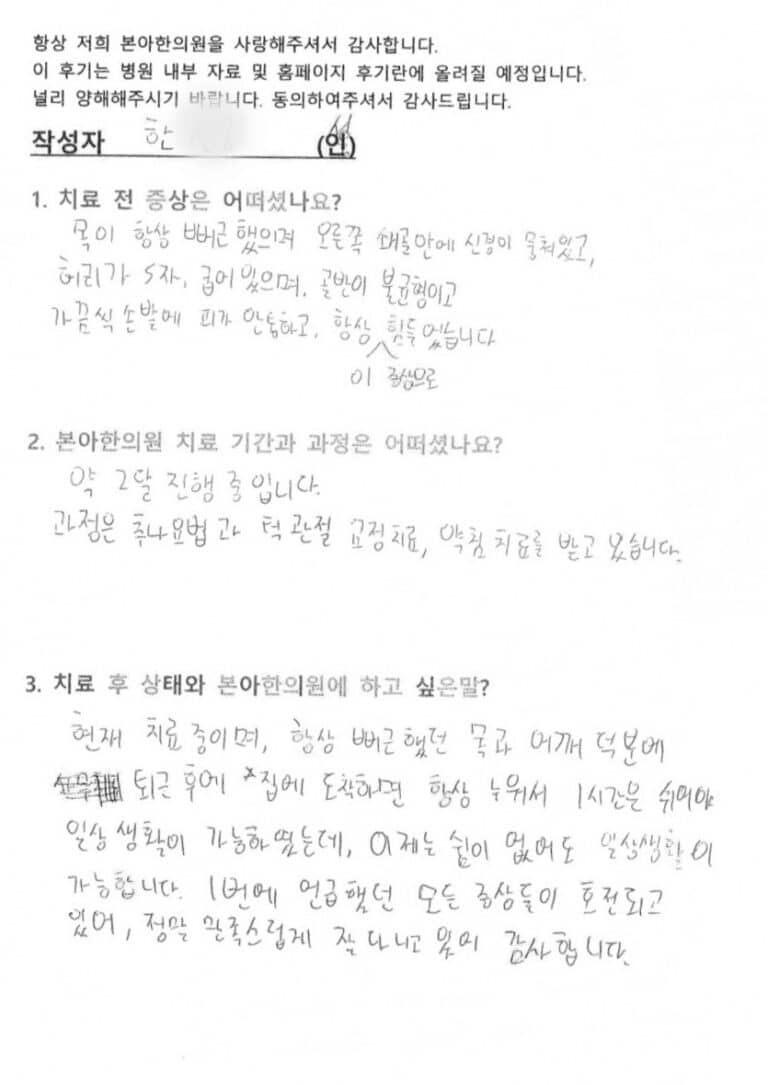 항상 저희 본아한의원을 사랑해주셔서 감사합니다.
이 후기는 병원 내부 자료 및 홈페이지 후기란에 올려질 예정입니다.
널리 양해해주시기 바랍니다. 동의하여주셔서 감사드립니다.
작성자 한 (인)
1. 치료 전 증상은 어떠셨나요?
목이 항상 뻐근했으며 오른쪽 쇄골안에 신경이 뭉쳐있고,
허리가 S자, 굽어있으며, 골반이 불균형이고
가끔씩 손발에 피가 안통하고, 항상 힘들었습니다
이 증상으로
2. 본아한의원 치료 기간과 과정은 어떠셨나요?
약 2달 진행 중입니다.
과정은 추나요법과 턱관절 교정치료, 약침치료를 받고 있습니다.
3. 치료 후 상태와 본아한의원에 하고 싶은말?
현재 치료중이며, 항상 뻐근했던 목과 어깨 덕분에
퇴근 후에 *집에 도착하면 항상 누워서 1시간은 쉬어야
일상생활이 가능하였는데, 이제는 쉼이 없어도 일상생활이
가능합니다. 1번에 언급했던 모든 증상들이 호전되고
있어, 정말 만족스럽게 잘 다니고 있어 감사합니다.